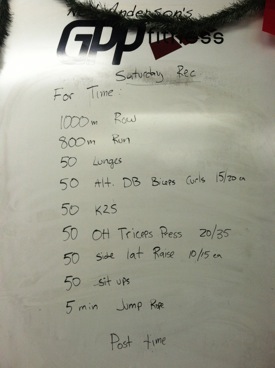 Anderson's
GPP fitness
Saturday Rec
For Time:
1000m Row
800m Run
50 Lunges
50 Alt. DB Biceps Curls 15/20 ea
50 K2S
50 OH Triceps Press 20/35
50 Side Lat Raise 10/15 ea
50 sit ups
5 min Jump Rope
Post time